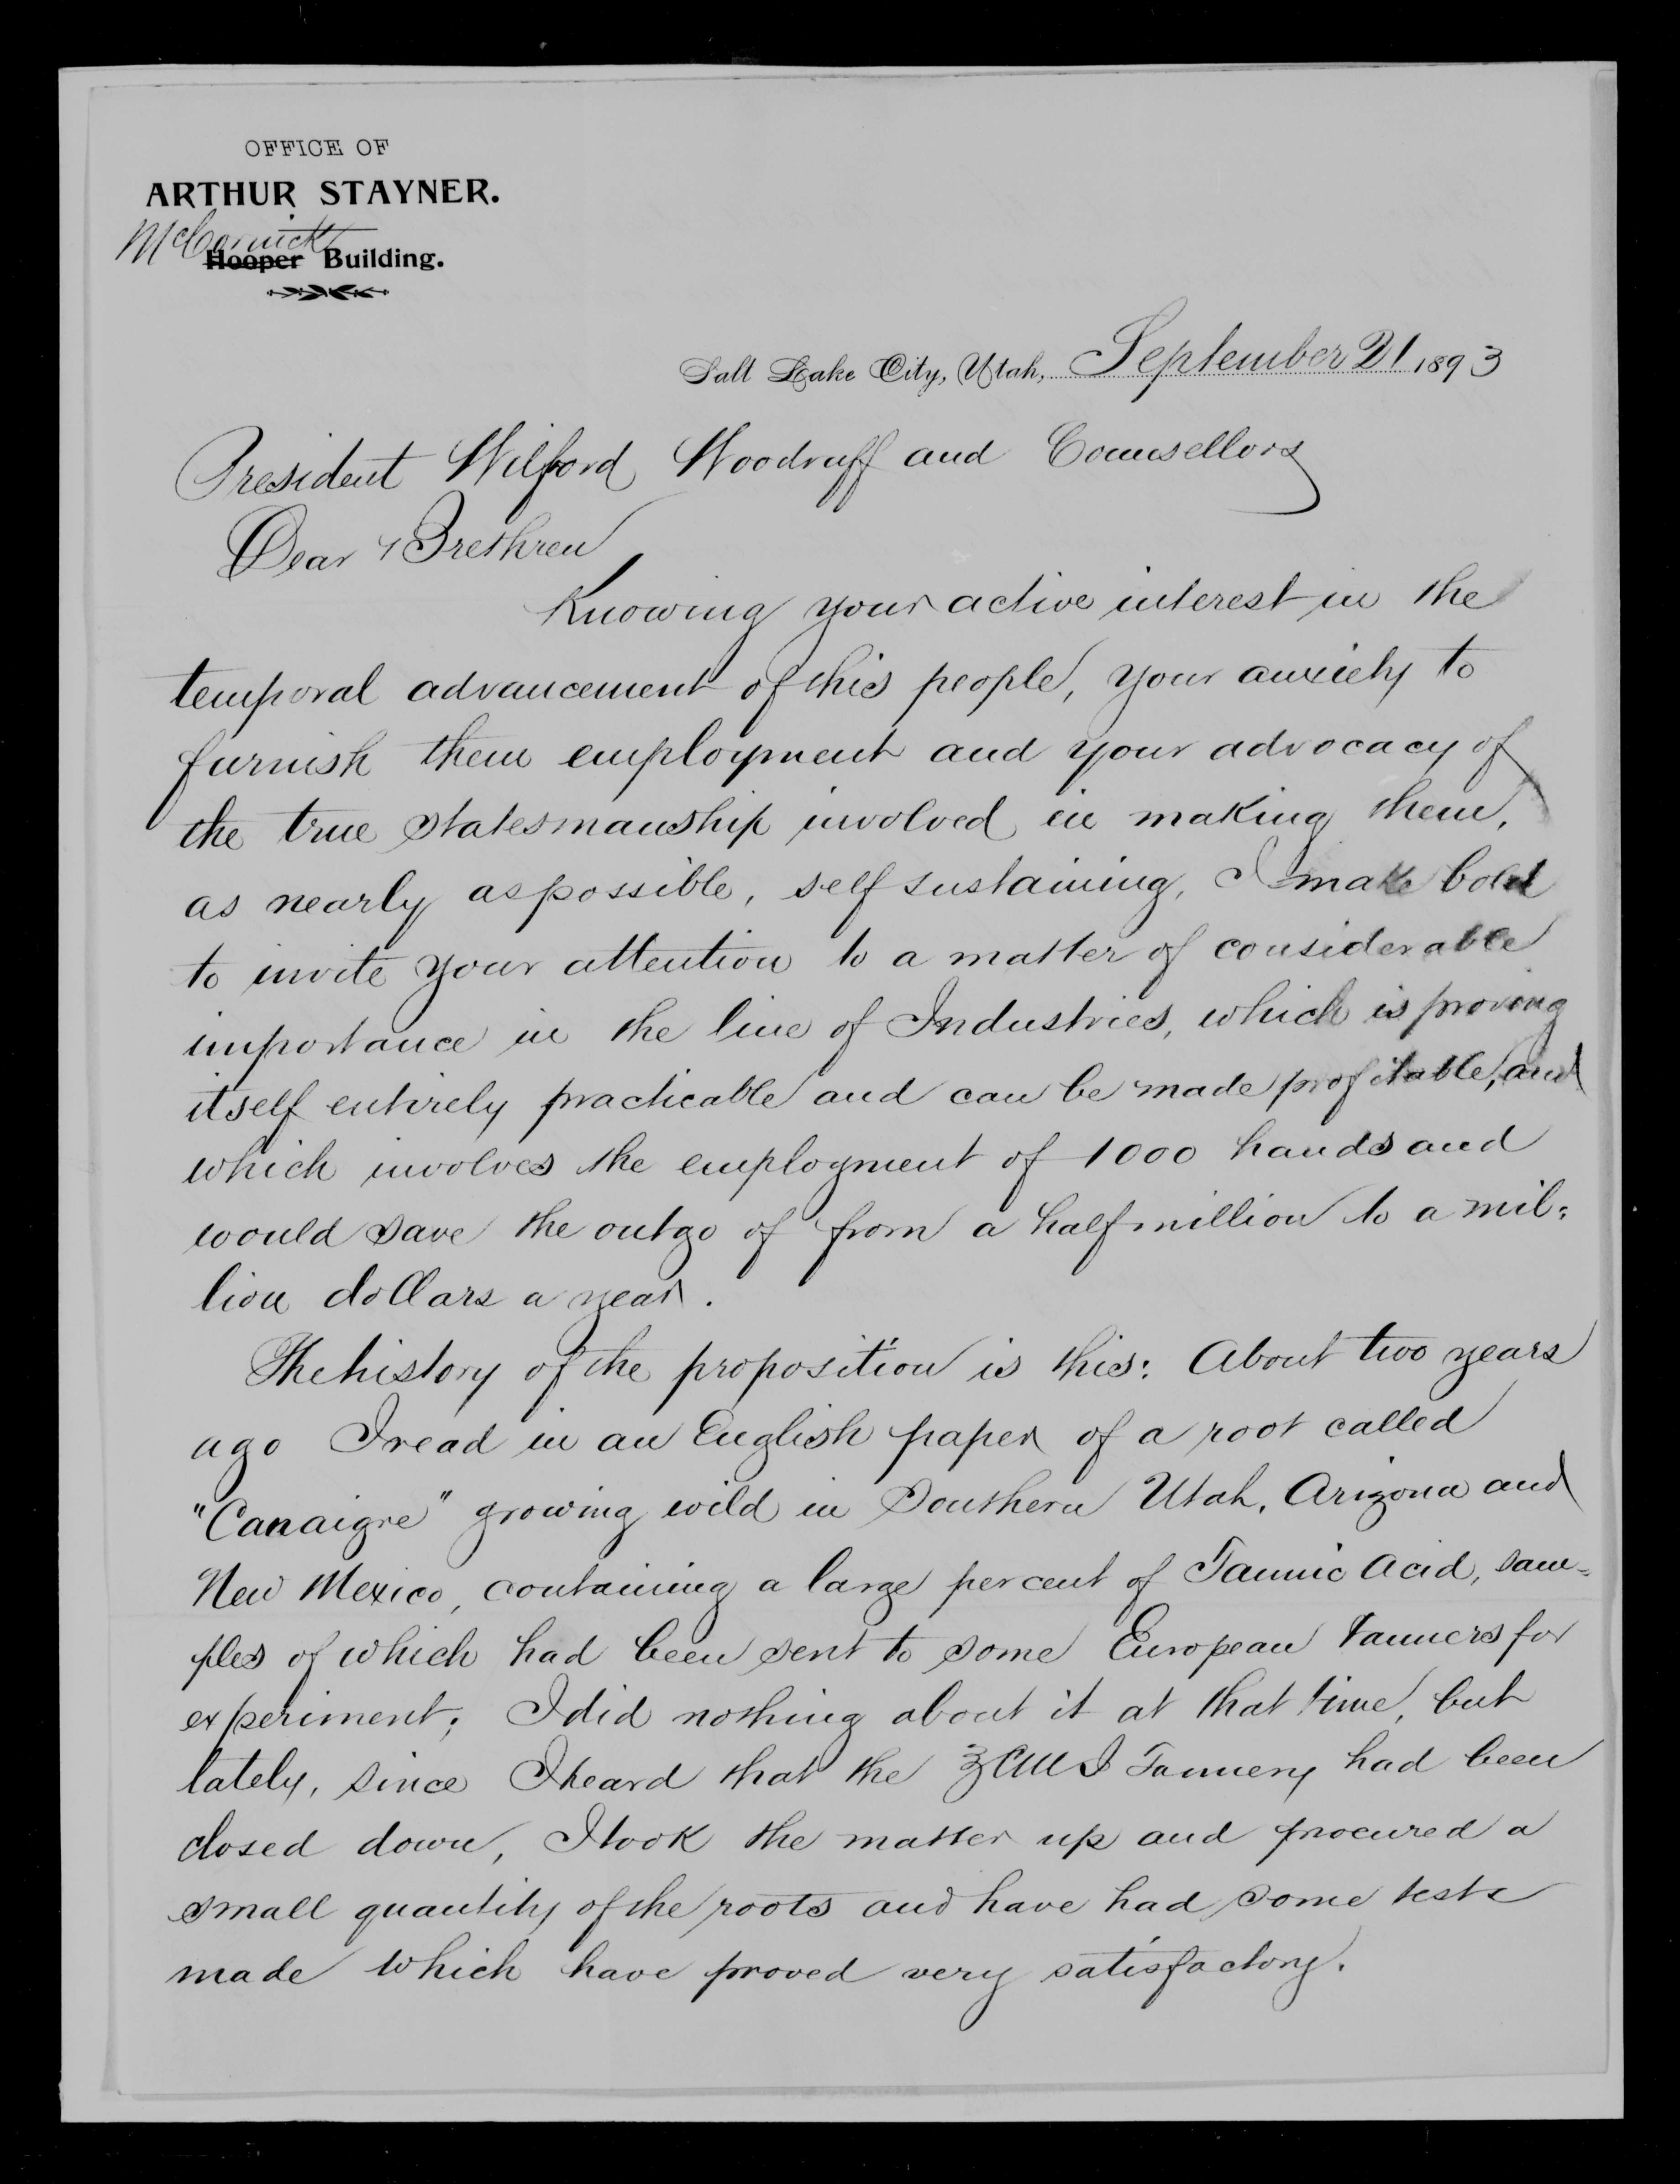 OFFICE OF
ARTHUR STAYNER.
McCornick
Hooper Building.
Salt Lake City, Utah, September 21 1893
President Wilford Woodruff and Counsellors
Dear Brethren
Knowing your active interest in the
temporal advancement of this people, your anxiety to
furnish them employment and your advocacy of
the true statesmanship involved in making them,
as nearly as possible, self sustaining, I make bold
to invite your attention to a matter of considerable
importance in the line of Industries, which is proving
itself entirely practicable and can be made profitable, and
which involves the employment of 1000 hands and
would save the outgo of from a half million to a mil-
lion dollars a year.
The history of the proposition is this: About two years
ago I read in an English paper of a root called
"Canaigre" growing wild in Southern Utah, Arizona and
New Mexico, containing a large percent of Tannic Acid, sam-
ples of which had been sent to some European tanners for
experiment; I did nothing about it at that time, but
lately, since I heard that the ZCMI Tannery had been
closed down, I took the matter up and procured a
small quantity of the roots and have had some tests
made which have proved very satisfactory.